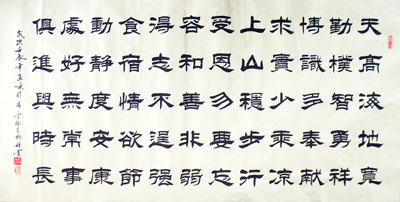 天高海地寬
勤樸智勇祥
博識多奉獻
求貴少乘涼
上山穩步行
受恩勿要忘
容和善非弱
得志不逞強
食宿情欲節
動靜度安康
處好無常事
俱進與時長